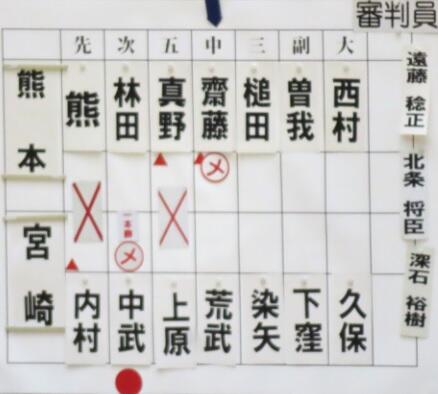 審判員
先 次 五 中 三 副 大
熊本 熊 林田 真野 齋藤 槌田 曽我 西村
メ
一本勝
メ
宮崎 内村 中武 上原 荒武 染矢 下窪 久保
遠藤 稔正
北条 将臣
深石 裕樹